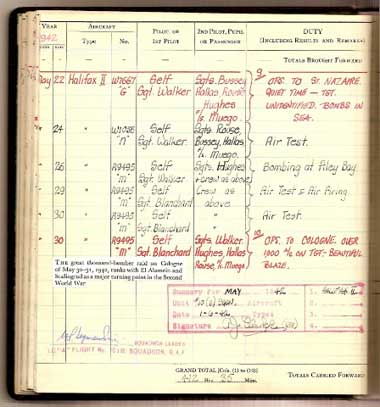 YEAR AIRCRAFT PILOT, OR 2ND PILOT, PUPIL DUTY
1942 Type No. 1ST PILOT OR PASSENGER (INCLUDING RESULTS AND REMARKS)
TOTALS BROUGHT FORWARD
May 22 Halifax II W7667 Self Sgts. Bussey 9 OPS. TO ST. NAZAIRE.
"G" Sgt. Walker Hallas Rouse, QUIET TIME – TGT.
Hughes UNIDENTIFIED – BOMBS IN
Muego. SEA.
" 24 " Self Sgts. Rouse,
Sgt. Walker Bussey, Hallas Air Test.
Muego.
" 26 " R9495 Self Sgts. Hughes Bombing at Filey Bay.
"M" Sgt. Walker
" 29 " R9495 Self Crew as Air Test & Air Firing.
"M" Sgt. Blanchard above
" 30 " R9495 Self " Air Test.
"M" Sgt. Blanchard
" 30 " R9495 Self Sgts. Walker 10 OPS. TO COLOGNE. OVER
"M" Sgt. Blanchard Hughes, Hallas 1000 A/C ON TGT – BEAUTIFUL
Rouse, Muego. BLAZE.
THE great thousand-bomber raid on Cologne
of May 30-31, 1942, ranks with El Alamein and
Stalingrad as a major turning point in the Second
World War
Summary for MAY 1942 1.
Unit Aircraft 2.
Date 1-6-42 Types 3.
Signature 4.
SQUADRON LEADER
FLIGHT No. SQUADRON, R.A.F.
GRAND TOTAL [Cols. (1) to (10)]
Hrs. 35 Mins. TOTALS CARRIED FORWARD